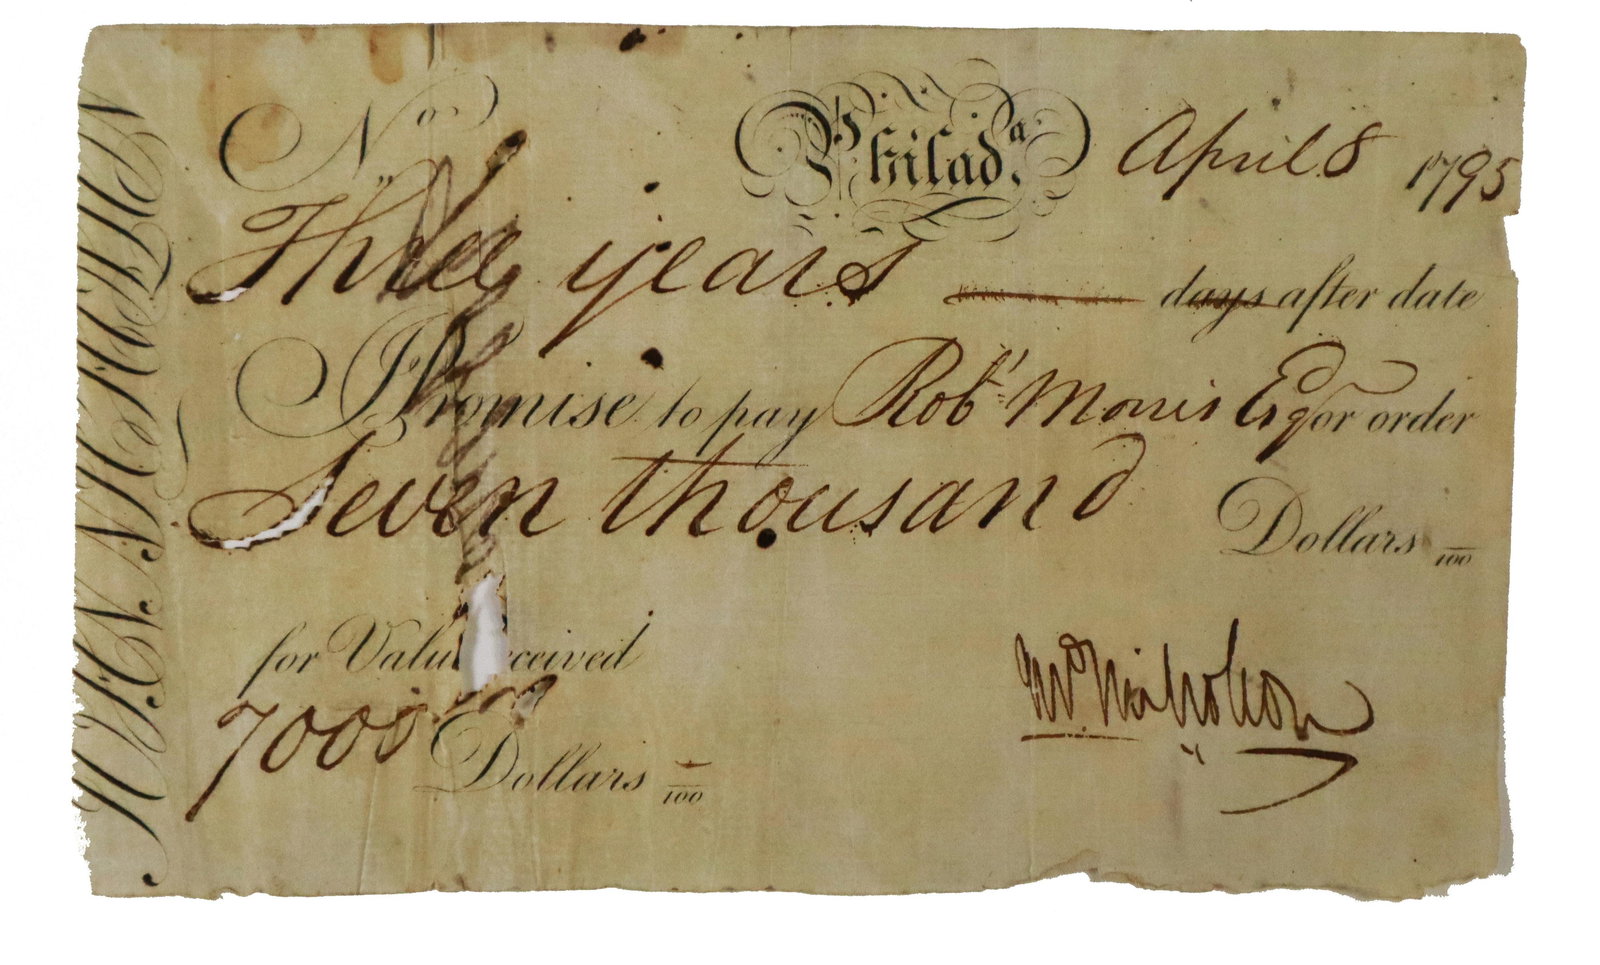 No. Philada. April 8 1795
Three years days after date
I Promise to pay Robt Morris Esqr or order
Seven thousand Dollars /100
for Value received
7000 Dollars /100
Jno Nicholson